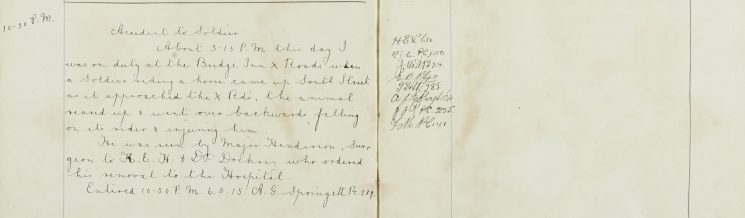 10-30 P.M.
Accident to Soldier
About 3-15 P.M. this day I
was on duty at the Bridge Inn X Roads when
a Soldier riding a horse came up South Street
as it approached the X Rds, the animal
reared up & went over backwards falling
on its rider & injuring him.
He was seen by Major Henderson, Sur-
geon to K.E.H. & Dr who ordered
his removal to the Hospital.
Entered 10-30 P.M. 6.5.15 A.G. Springett Pc 219.
PC 100
785
PC 235